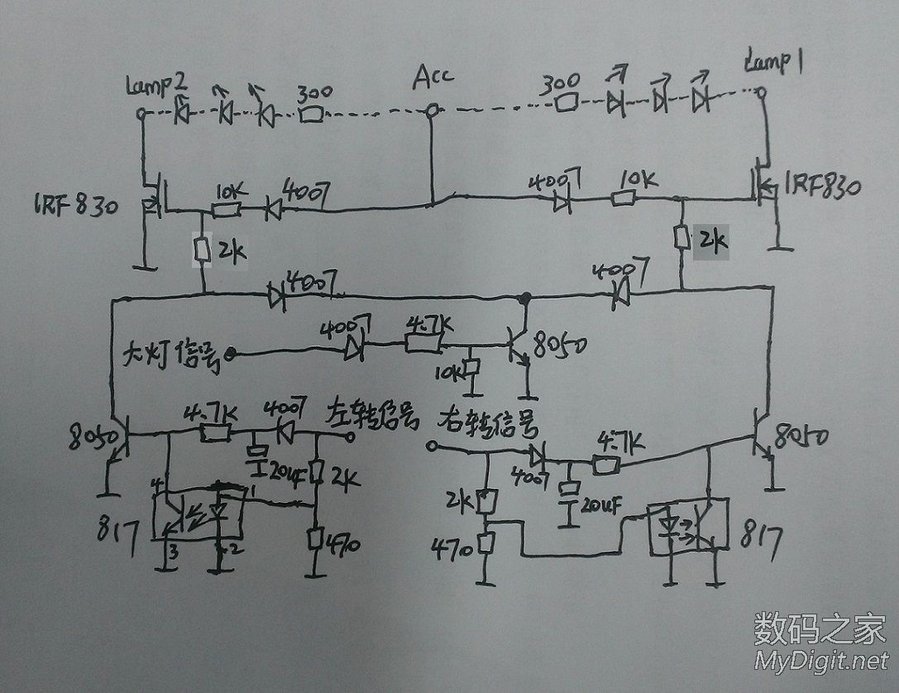 Lamp2
300
Acc
300
Lamp1
IRF830
10K
4007
4007
10K
IRF830
2K
2K
4007
4007
大灯信号
4007
4.7K
8050
10K
8050
4.7K
4007
左转信号
右转信号
4.7K
8050
20uF
2K
4007
20uF
2K
4
1
817
3
2
470
470
817
数码之家
MyDigit.net